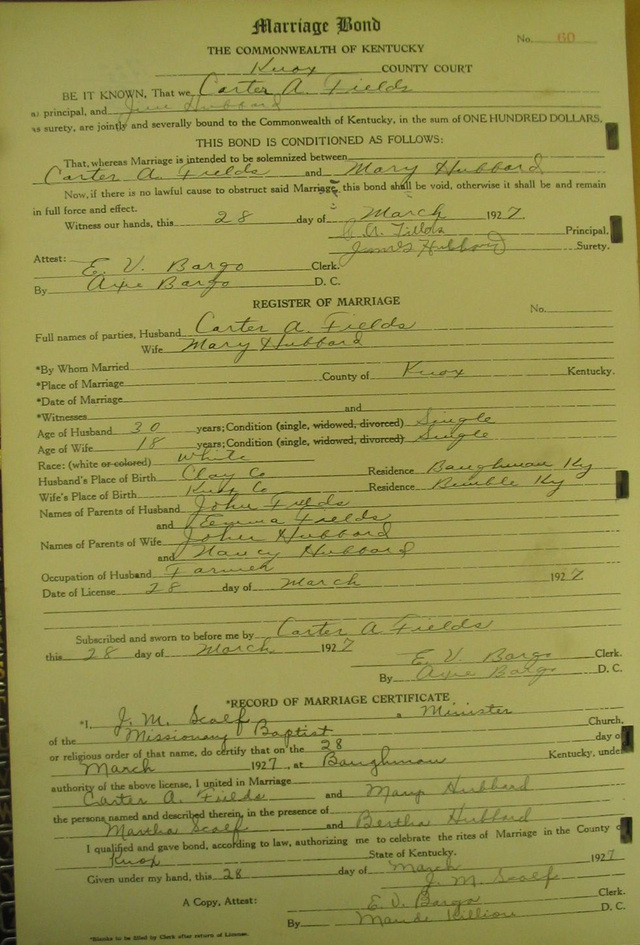 Marriage Bond
No. 60
THE COMMONWEALTH OF KENTUCKY
Knox COUNTY COURT
BE IT KNOWN, That we Carter A. Fields
as principal, and Jim Hubbard
as surety, are jointly and severally bound to the Commonwealth of Kentucky, in the sum of ONE HUNDRED DOLLARS.
THIS BOND IS CONDITIONED AS FOLLOWS:
That, whereas Marriage is intended to be solemnized between
Carter A. Fields and Mary Hubbard
Now, if there is no lawful cause to obstruct said Marriage, this bond shall be void, otherwise it shall be and remain
in full force and effect.
Witness our hands, this 28 day of March 1927
Principal.
Hubbard Surety.
Attest: E. V. Bargo Clerk.
By Bargo D. C.
REGISTER OF MARRIAGE
No.
Full names of parties, Husband Carter A. Fields
Wife Mary Hubbard
*By Whom Married
*Place of Marriage County of Knox Kentucky.
*Date of Marriage
*Witnesses and
Age of Husband 30 years; Condition (single, widowed, divorced) Single
Age of Wife 18 years; Condition (single, widowed, divorced) Single
Race: (white or colored) White
Husband's Place of Birth Clay Co Residence Baughman Ky
Wife's Place of Birth Knox Co Residence Bimble Ky
Names of Parents of Husband John Fields
and Emma Fields
Names of Parents of Wife John Hubbard
and Nancy Hubbard
Occupation of Husband Farmer
Date of License 28 day of March 1927
Subscribed and sworn to before me by Carter A Fields
this 28 day of March 1927
E. V. Bargo Clerk.
By Bargo D. C.
*RECORD OF MARRIAGE CERTIFICATE
*I, J. M. Scalf a Minister
of the Missionary Baptist Church,
or religious order of that name, do certify that on the 28 day of
March 1927, at Baughman Kentucky, under
authority of the above license, I united in Marriage
Carter A. Fields and Hubbard
the persons named and described therein, in the presence of
Martha Scalf and Bertha Hubbard
I qualified and gave bond, according to law, authorizing me to celebrate the rites of Marriage in the County of
Knox State of Kentucky.
Given under my hand, this 28 day of March 1927
J. M. Scalf
A Copy, Attest: E. V. Bargo Clerk.
By Maude D. C.
*Blanks to be filed by Clerk after return of License.